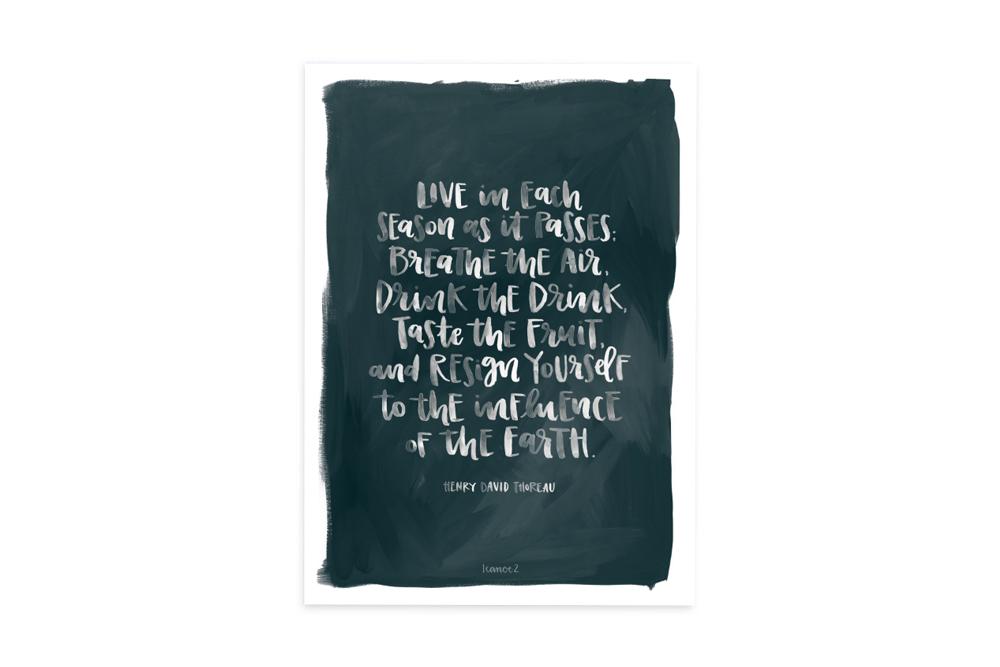 LIVE in Each
SEason as it PaSSES;
BrEaTHE thE Air,
Drink thE Drink,
TaSte thE FruiT,
and RESign YoUrSelF
to thE inFluEncE
oF thE EarTH.
HENRY DAVID THOREAU
1canoe2